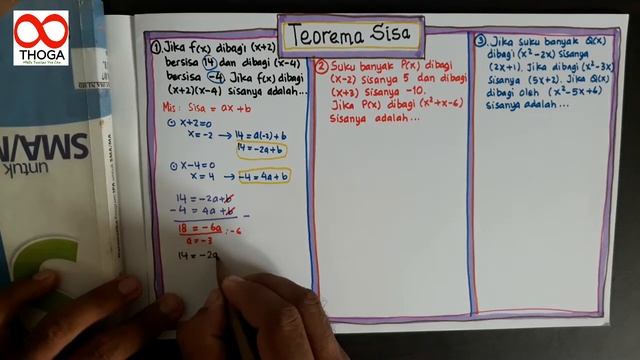 THOGA
untuk
SMA/M
Teorema Sisa
① Jika f(x) dibagi (x+2)
bersisa 14 dan dibagi (x-4)
bersisa -4. Jika f(x) dibagi
(x+2)(x-4) sisanya adalah...
Mis: Sisa = ax + b
⊙ x+2=0
x = -2 → 14 = a(-2) + b
14 = -2a+b
⊙ x-4=0
x = 4 → -4 = 4a+b
14 = -2a+b
-4 = 4a+b
-
18 = -6a :-6
a = -3
14 = -2a
② Suku banyak P(x) dibagi
(x-2) sisanya 5 dan dibagi
(x+3) sisanya -10.
Jika P(x) dibagi (x²+x-6)
sisanya adalah...
③ Jika suku banyak Q(x)
dibagi (x²-2x) sisanya
(2x+1). Jika dibagi (x²-3x)
Sisanya (5x+2). Jika Q(x)
dibagi oleh (x²-5x+6)
sisanya adalah...